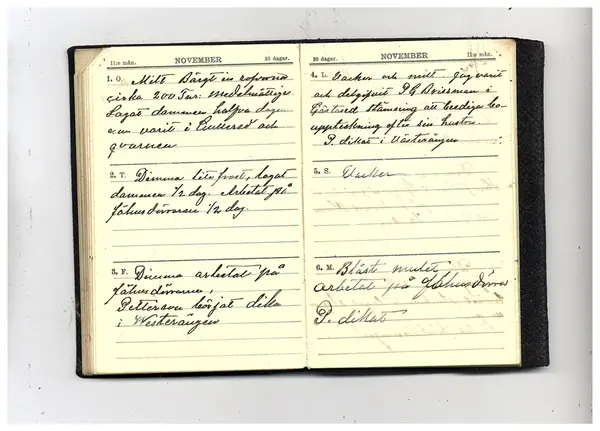 11:e mån. NOVEMBER 30 dagar.
1. O. Milt Bärgt in
200 medelmåttiga
Lagat dammen halfva dagen
varit i och
qvarnen
2. T. Dimma lite frost, lagat
dammen 1/2 dag. Arbetat på
fähusdörrarna 1/2 dag.
3. F. Dimma arbetat på
fähusdörrarna,
Petterson börjat dika
i Westerängen
30 dagar. NOVEMBER 11:e mån.
4. L. Vacker och milt. Jag varit
och P G i
att
uppteckning efter sin hustru.
P. dikat i Västerängen
5. S. Vacker
6. M. Blåst mulet
arbetat på fähusdörra
P. dikat